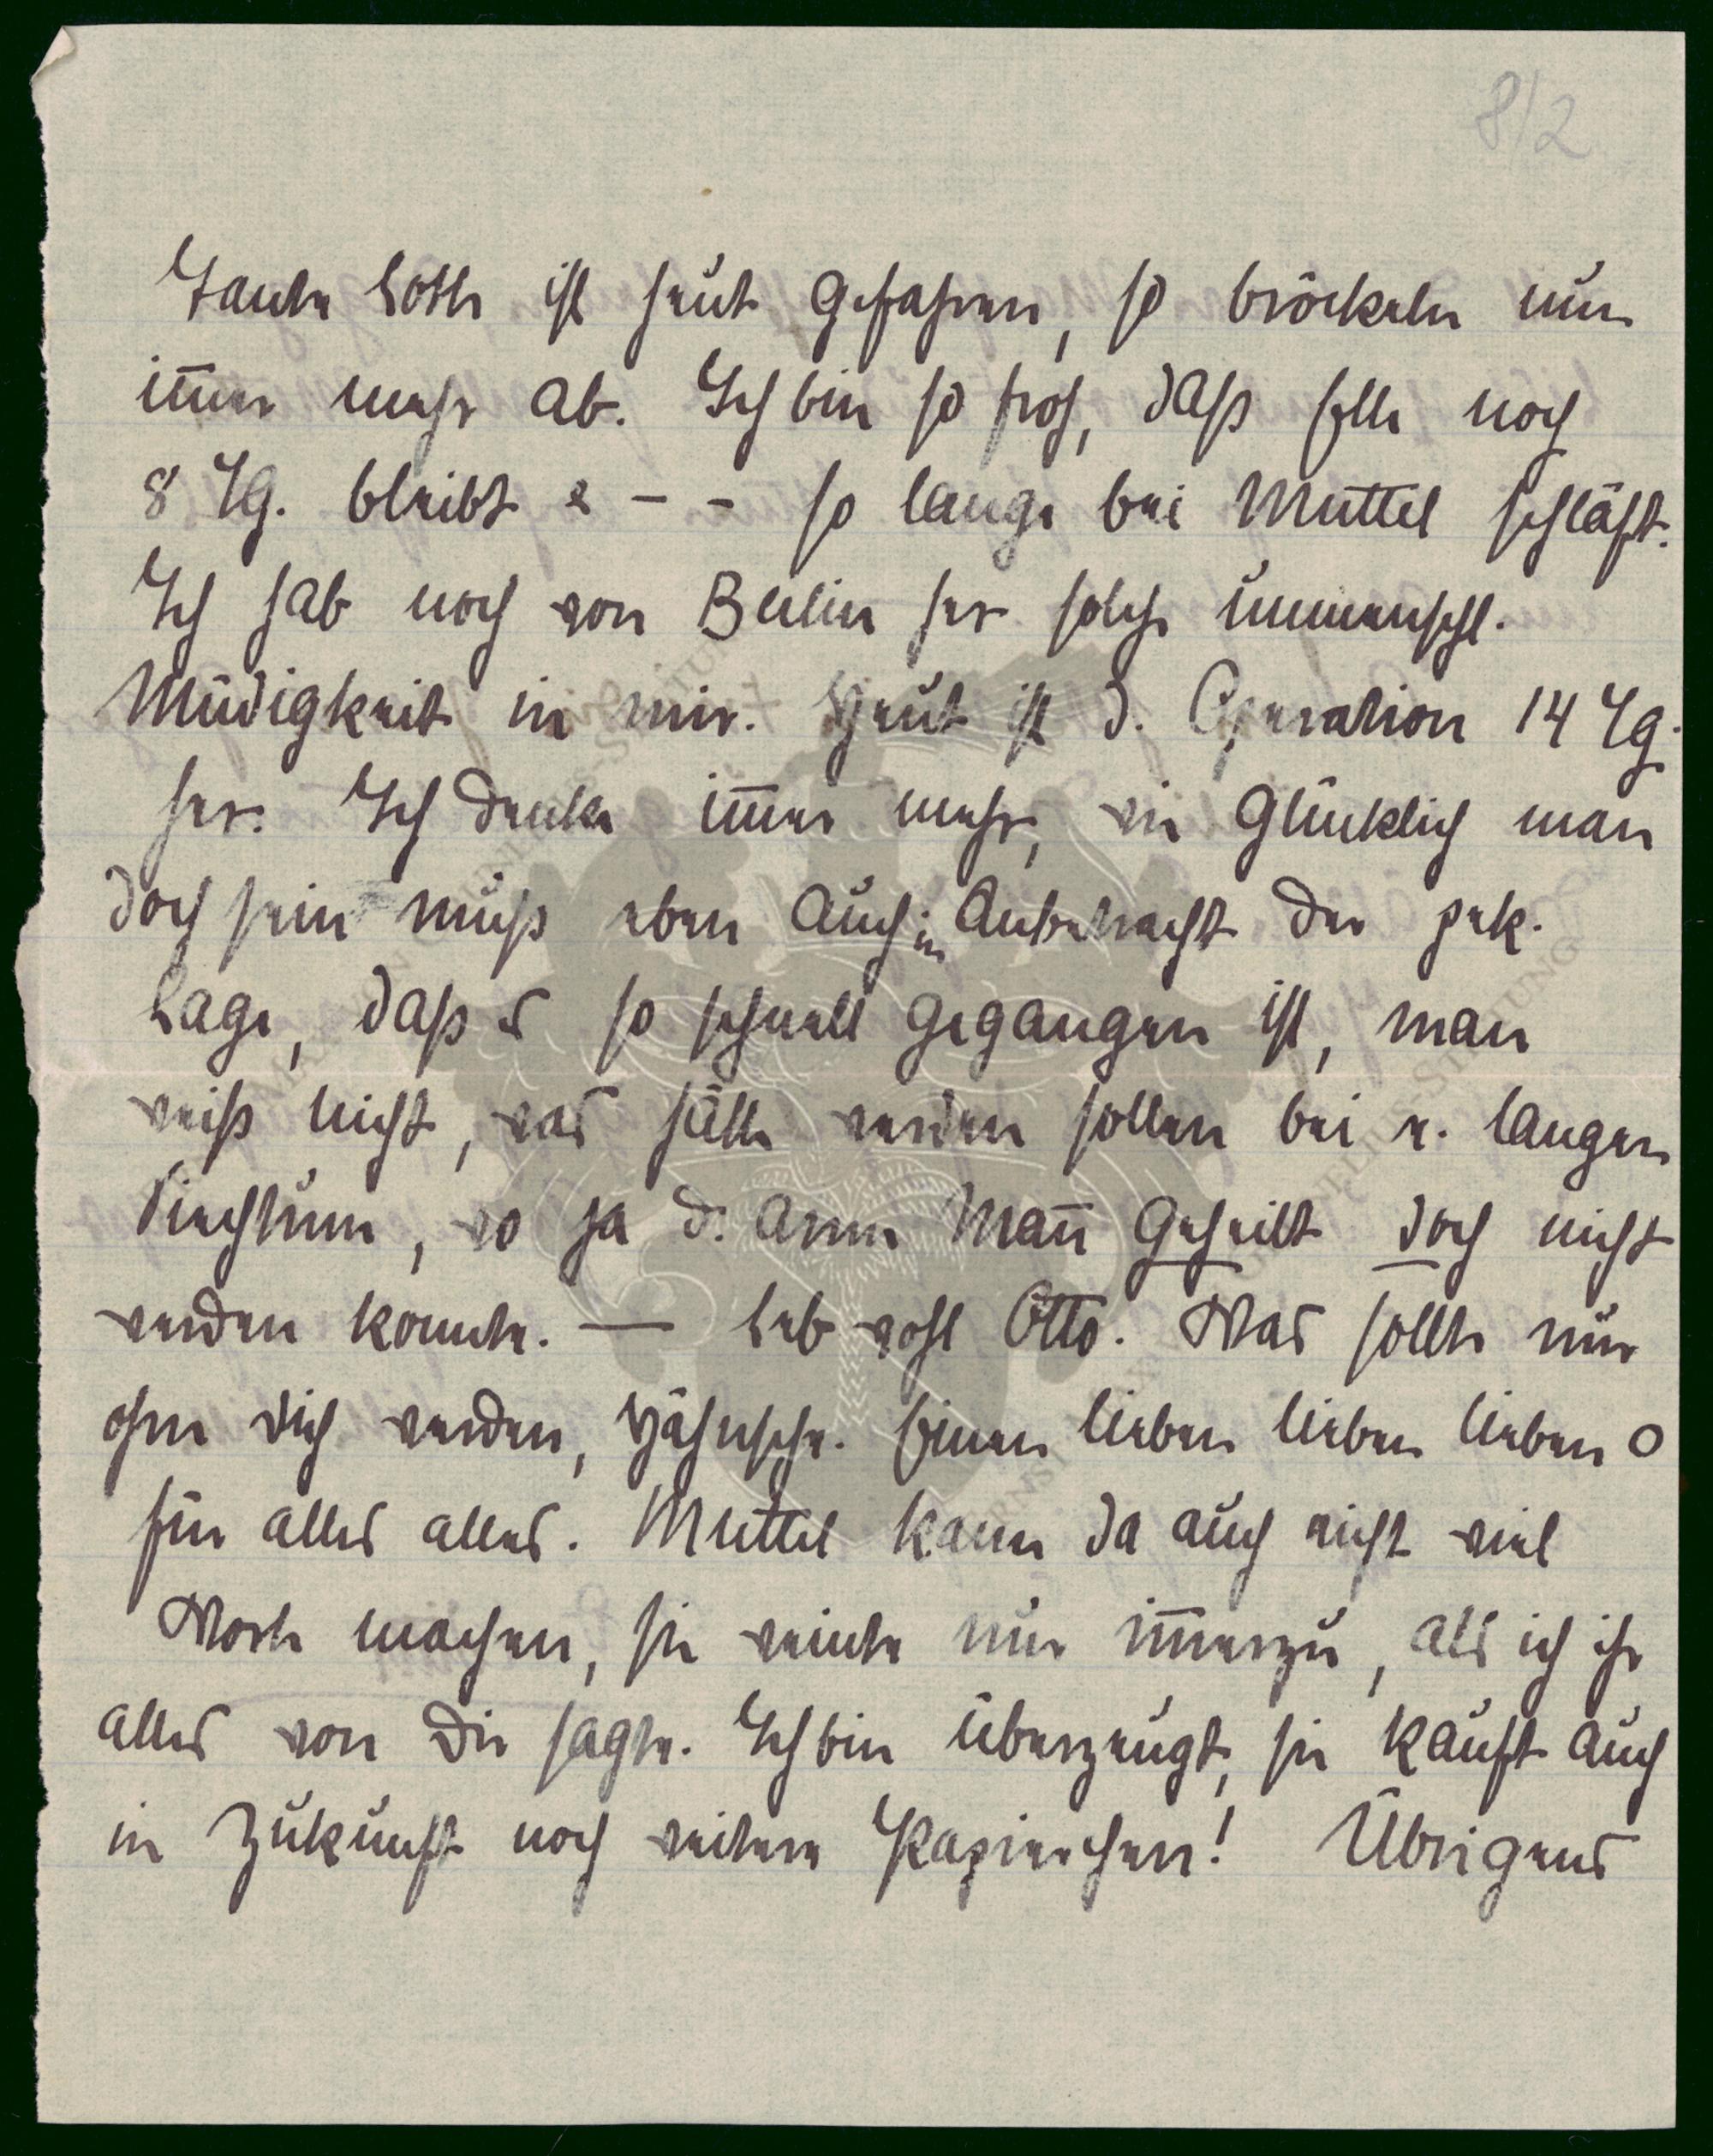 8/2
Tante Lotte ist heut gefahren, so bröckeln nun
im̅er mehr ab. Ich bin so froh, daß Elle noch
8 Tg. bleibt & - - so lange bei Muttel schläft.
Ich hab noch von Berlin her solche unmenschl.
Müdigkeit in mir. Heut ist d. Operation 14 Tg.
her. Ich denke im̅er mehr, wie glücklich man
doch sein muß eben auch in Anbetracht der pek.
Lage, daß es so schnell gegangen ist, man
weiß nicht, was hätte werden sollen bei e. langen
Siechtum, wo ja d. arme Man̅ geheilt doch nicht
werden konnte. — Leb wohl Otto. Was sollte nur
ohne Dich werden, Hähnsche. Einen lieben lieben lieben O
für alles alles. Muttel kann da auch nicht viel
Worte machen, sie weinte nur im̅erzu, als ich ihr
alles von Dir sagte. Ich bin überzeugt, sie kauft auch
in Zukunft noch weitere Papierchen! Übrigens